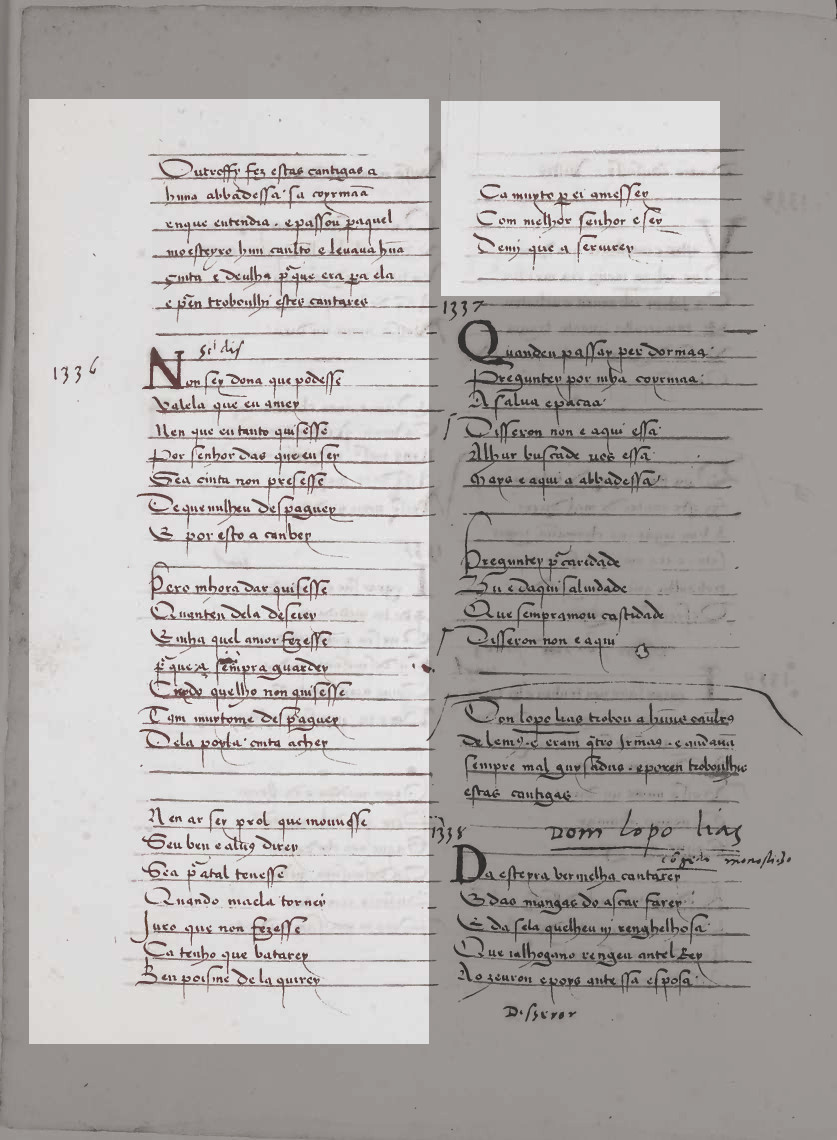 Outrossy fez estas cantigas a
huna abbadessa sa coyrmaã
enque entendia . e passou paquel
moesteyro huũ caulr̃o e leuaua hũa
çinta e deulha p̃ que era pa ela
e pẽn troboulhi estes cantares
1336
Non sey dona que podesse
Valela que eu amey
Nen que eu tanto quisesse
Por senhor das que eu sey
Sea cinta non presesse
De quemilheu despaguey
E por esto a canbey
Pero mhora dar quisesse
Quanten dela deseiey
E mha quel amor fezesse
p̃ que sẽmpra guardey
Cuydo quelho non quisesse
Tam muytome despaguey
Dela poyla cinta achey
Nen ar sey prol que mouuesse
Seu ben e al9 direy
Sea p̃ atal teuesse
Quando macla torney
Juro que non fezesse
Ca tenho que batarey
Ben poisme dela quitey
Ca muyto per ei amessey
Com melhor senhor e sey
Demj que a seruirey
1337
Quandeu passar per dormaa
Preguntey por mha coyrmaa
A salua e paçaa
Disseron non e aqui essa
Alhur buscade uos essa
Mays e aqui a abbadessa
Preguntey p̃ caridade
Hu e daqui saluidade
Que sempramou castidade
Disseron non e aqui
Don lopo lias trobou a hũus caulr̃s
de lem9. e eram q̃tro Jrmãs . e andauã
sempre mal guysados . e poren troboulhis
estas cantigas
1338
Dom lopo lias
Da esteyra vermelha cantarey
E das mangas do ascar farey
E da sela quelheu uj renghelhosa
Que ialhogano rengeu antel Rey
Ao zeuron e poys ante ssa esposa